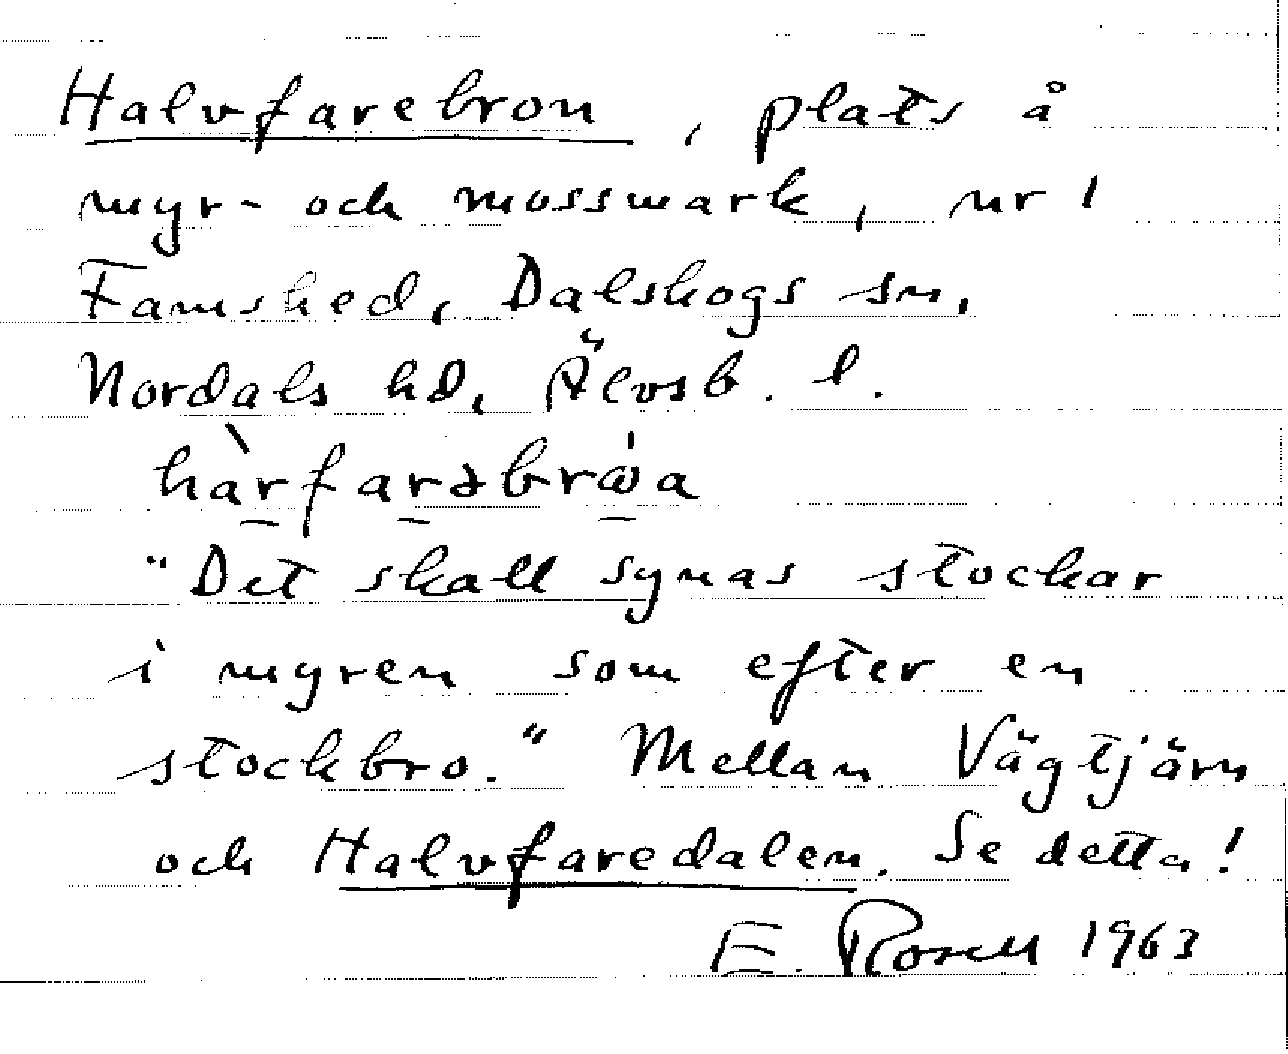 Halvfarebron, plats å
myr- och mossmark, nr 1
Famshed, Dalskogs sn,
Nordals hd, Älvsb. l.
hàrfarəbrώa
"Det skall synas stockar
i myren som efter en
stockbro." Mellan Vägtjärn
och Halvfaredalen. Se detta!
E. Rosell 1963